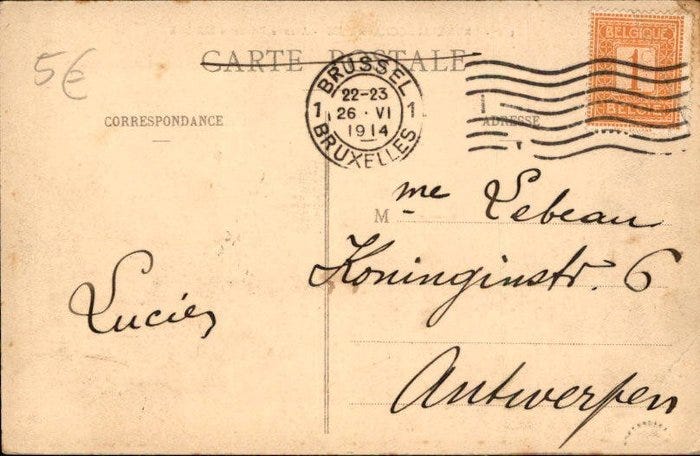 5€
CARTE POSTALE
BRÜSSEL
22-23
1 26 · VI 1
1914
BRUXELLES
BELGIQUE
1
BELGIË
CORRESPONDANCE
ADRESSE
Mme Lebeau
Koninginstr. 6
Antwerpen
Lucien